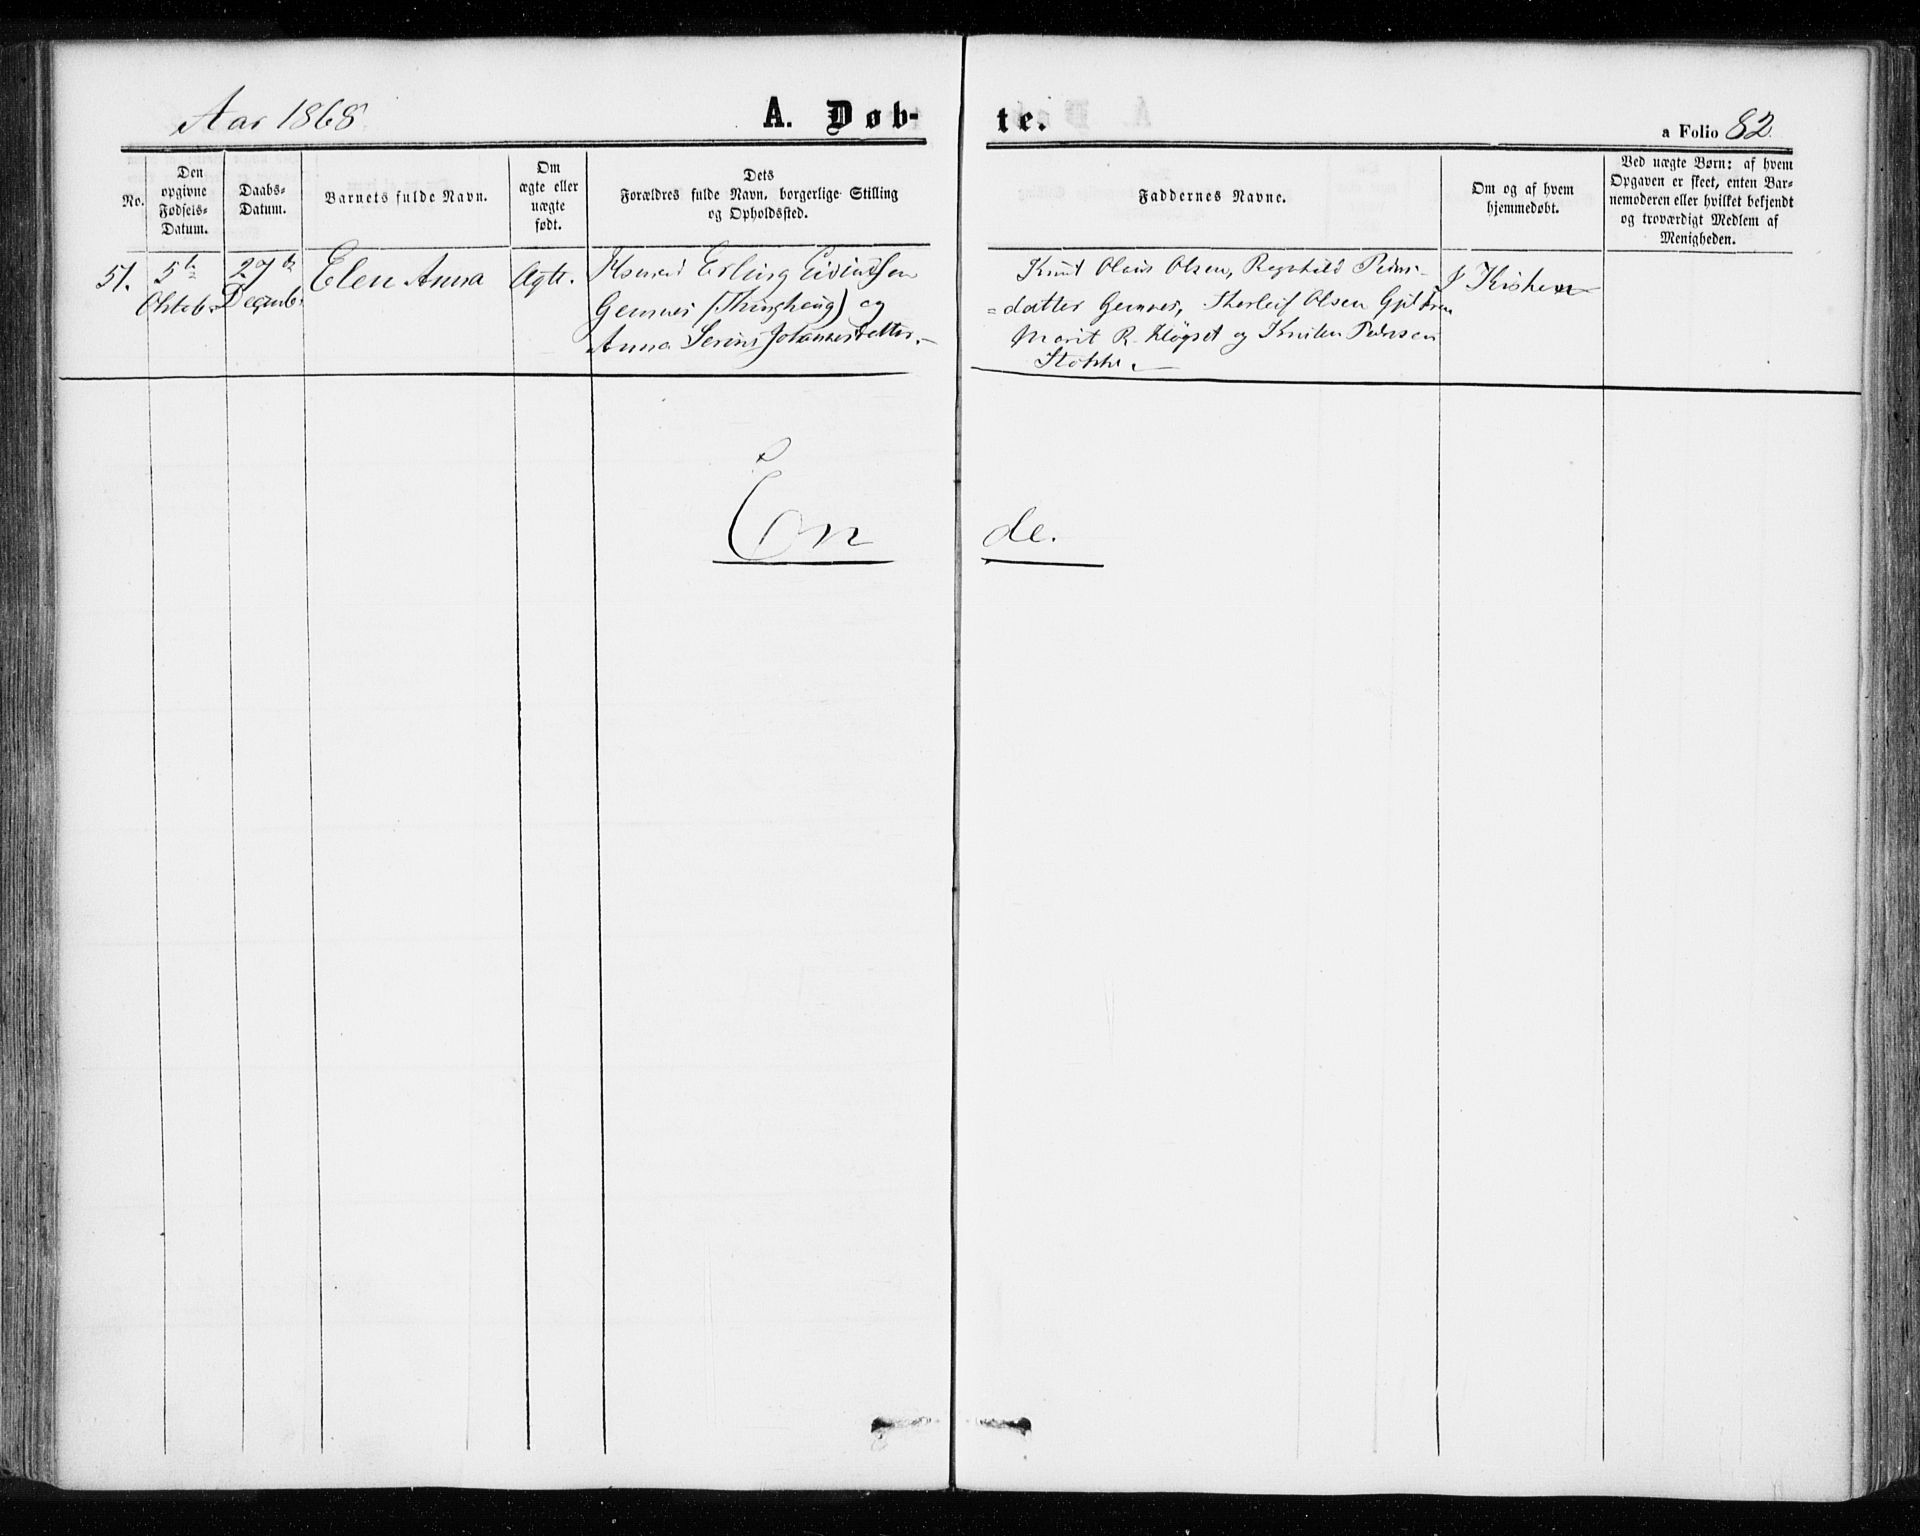 Aar 1868
A. Døb-
te.
a Folio 82.
No.
Den
opgivne
Fødsels-
Datum.
Daabs-
Datum.
Barnets fulde Navn.
Om
ægte eller
uægte
født.
Dets
Forældres fulde Navn, borgerlige Stilling
og Opholdssted.
Faddernes Navne.
Om og af hvem
hjemmedøbt.
Ved uægte Børn: af hvem
Opgaven er skeet, enten Bar-
nemoderen eller hvilket bekjendt
og troværdigt Medlem af
Menigheden.
51.
5te
Oktob.
27de
Decemb.
Elen Anna
Ægte.
Erling Eivindsen
Gemnes (Thinghaug) og
Anna Serine Johannesdatter.
Knud Olaus Olsen, Ragnhild Peders-
=datter Gemnes, Thorleif Olsen
Marit R. Høgset og Kristen Pedersen
Stokke.
I Kirken
En
de.